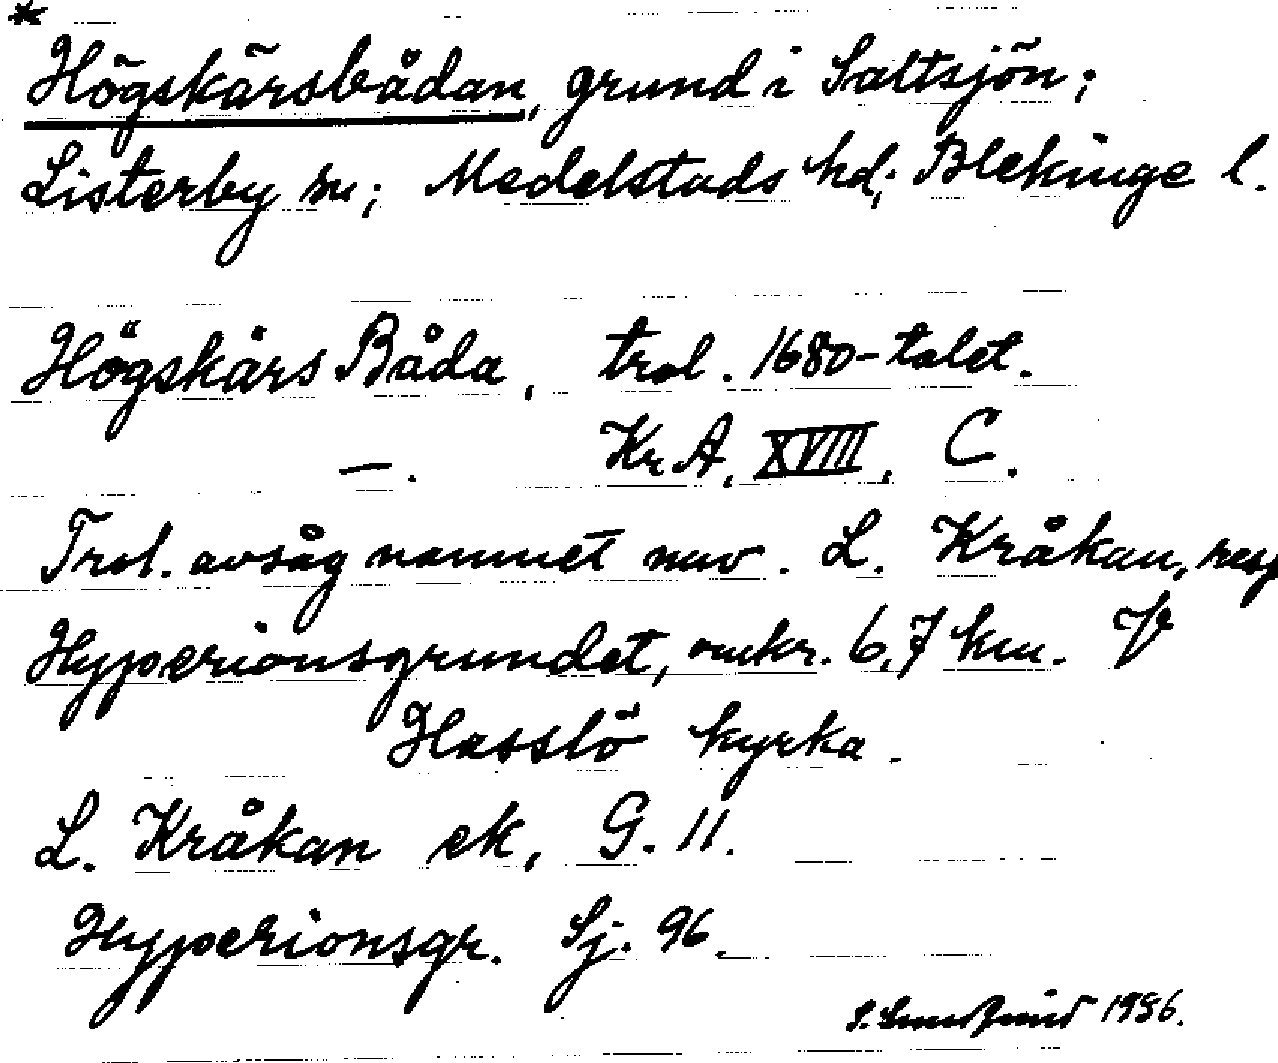 *
Högskärsbådan, grund i Saltsjön;
Listerby sn; Medelstads hd; Blekinge l.
Högskärs Båda, trol. 1680-talet.
—. Kr A, XVIII, C.
Trol. avsåg namnet nuv. L. Kråkan, resp
Hyperionsgrundet, omkr. 6,7 km. V
Hasslö kyrka.
L. Kråkan ek, G. 11.
Hyperionsgr. Sj. 96.
S. 1956.